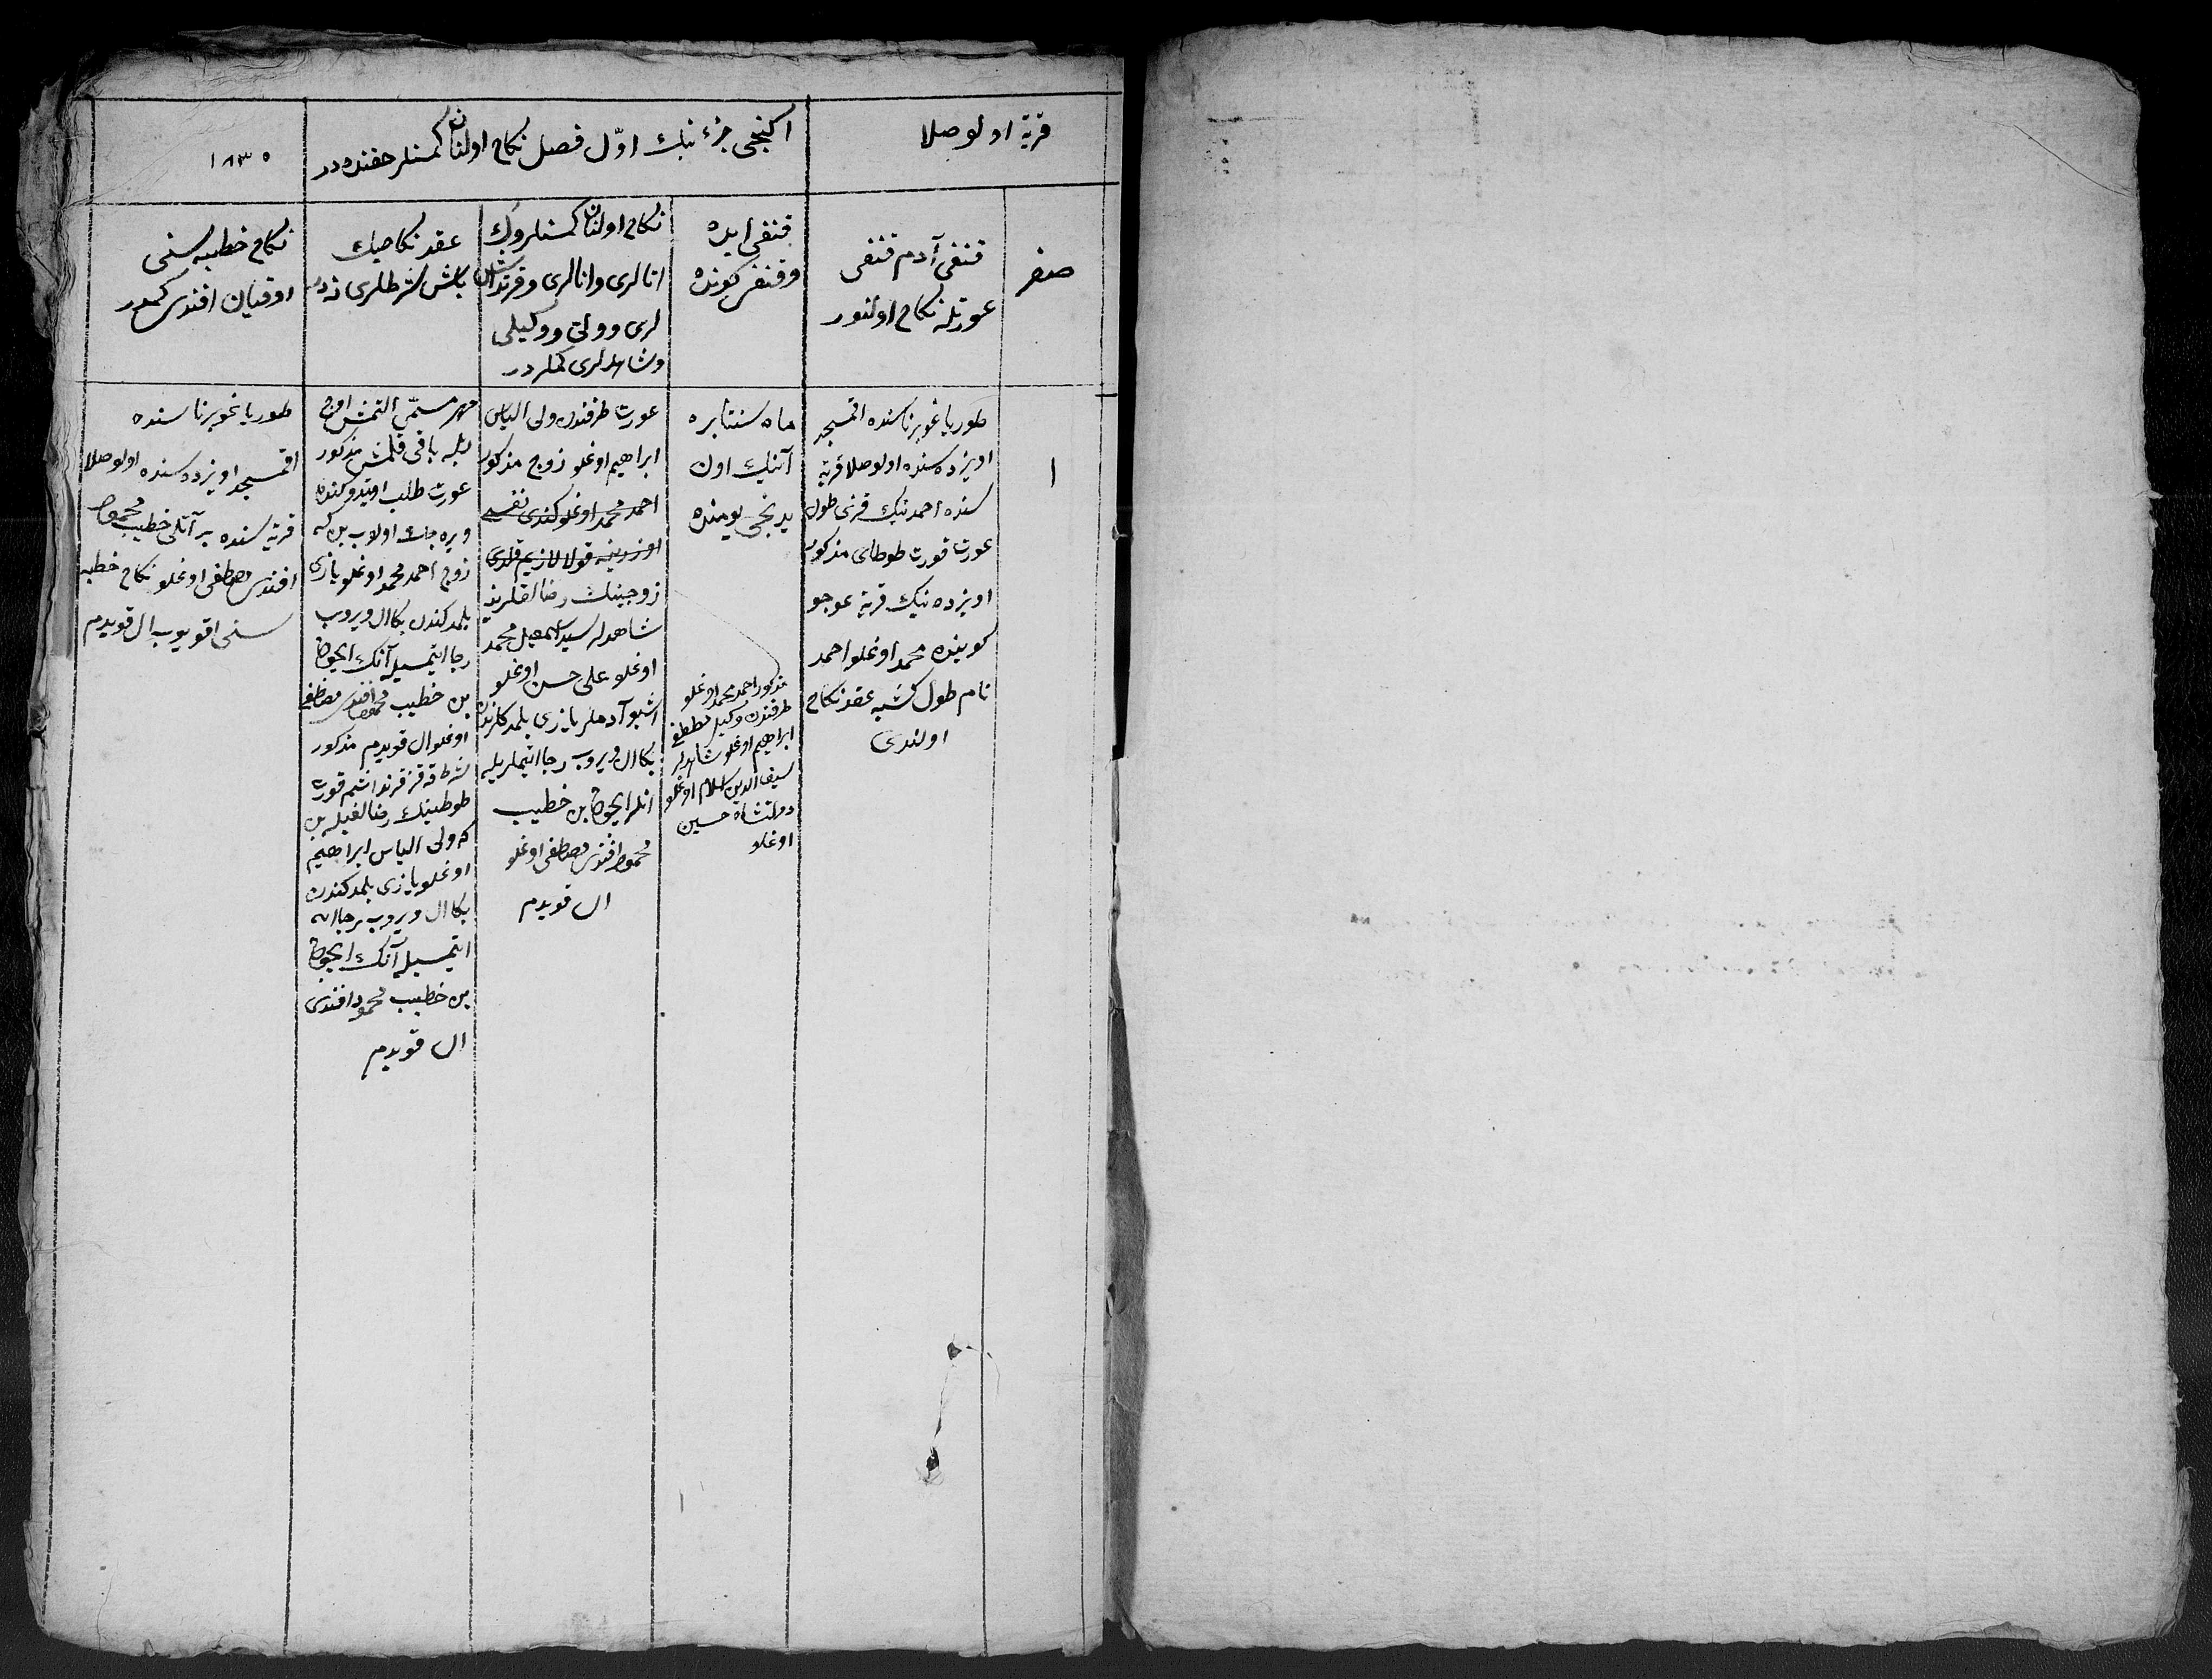 قریۀ اولوصلا
اکنجی جزءنیك اوّل فصل نکاح اولنان کمسنلر حقنده در
۱۸۳۰
صفر
قنفی آدم قنفی
عورتله نکاح اولنور
قنفی ایده
وقنفی کونده
نکاح اولنان کمسنلروڭ
اتالری وانالری وقرنداش
لری وولی ووکیلی
وشاهدلری کملردر
عقد نکاحیك
باش شرطلری نه در
نکاح خطبه سنی
اوقیان افندی کمدر
۱
طوریا غوبرناسنده اقمسجد
اویزده سنده اولوصلا قریۀ
سنده احمدنیك قزی طول
عورت قورت طوطای مذکور
اویزده نیك قریۀ عوجو
کوینده محمد اوغلو احمد
نام طول کشیه عقد نکاح
اولندی
ماه سنتابره
آینیك اون
یدنجی یومنده
مذکور احمد محمد اوغلو
طرفندن وکیل مصطفی
ابراهیم اوغلو شاهدلر
سیف الدین اسلام اوغلو
دولتشاه حسین
اوغلو
عورت طرفنده ولی الیاس
ابراهیم اوغلو زوج مذکور
احمد محمد اوغلو کندی نفسی
اوزرینه قولا لازیم قلدی
زوجینك رضالقلرینه
شاهدلر سید اسمعیل محمد
اوغلو علی حسن اوغلو
اشبو آدملر یازی بلمدکلرندن
بکا ال ویروب رجا ایتملریله
انلر ایچون بن خطیب
محمود افندی مصطفی اوغلو
ال قویدم
مهر مسمّی التمش اون
ایله باقی قلمش مذکور
عورت طلب ایتدوکنده
ویره جك اولوب بن که
زوج احمد محمد اوغلو یازی
بلمدکندن بکا ال ویروب
رجا ایتمسیله آنك ایچون
بن خطیب محمود افندی مصطفی
اوغلو ال قویدم مذکور
شرطه قز قرنداشم قورت
طوطینك رضالغیله بن
که ولی الیاس ابراهیم
اوغلو یازی بلمدکندن
بکا ال ویروب رجا
ایتمسیله آنك ایچون
بن خطیب محمود افندی
ال قویدم
طوریا غوبرناسنده
اقمسجد اویزده سنده اولوصلا
قریه سنده بر آتلی خطیب محمود
افندی مصطفی اوغلو نکاح خطبه
سنی اقویوب ال قویدم